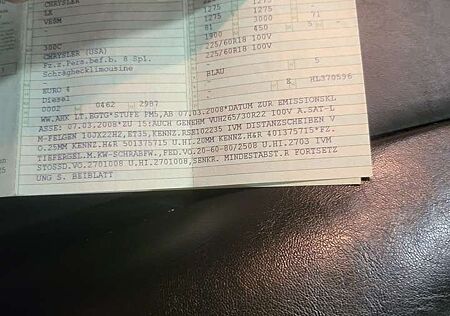 CHRYSLER
LX
VEGM
300C
CHRYSLER (USA)
Fz.z.Pers.bef.b. 8 Spl.
Schräghecklimousine
EURO 4
Diesel
0002 0462 2987
1275 1275
1275 1275
1275 3000 71
81 450
1900
225/60R18 100V
225/60R18 100V
BLAU 5
8 HL370596
WW.AHX LT.BGTG*STUFE PM5,AB 07.03.2008*DATUM ZUR EMISSIONSKL
ASSE: 07.03.2008*ZU 15:AUCH GENEHM VUH265/30R22 100V A.SAT-L
M-FELGEN 100X22H2,ET35,KENNZ.RSE102235 IVM DISTANZSCHEIBEN V
O.25MM KENNZ.H&R 501375715 U.HI.20MM KENNZ.H&R 401375715*FZ.
TIEFERGEL.M.KW-SCHRABFW.,FED.VO.20-60-80/2508 U.HI.2703 IVM
STOSSD.VO.2701008 U.HI.2701008,SENKR. MINDESTABST.R FORTSETZ
UNG S. BEIBLATT